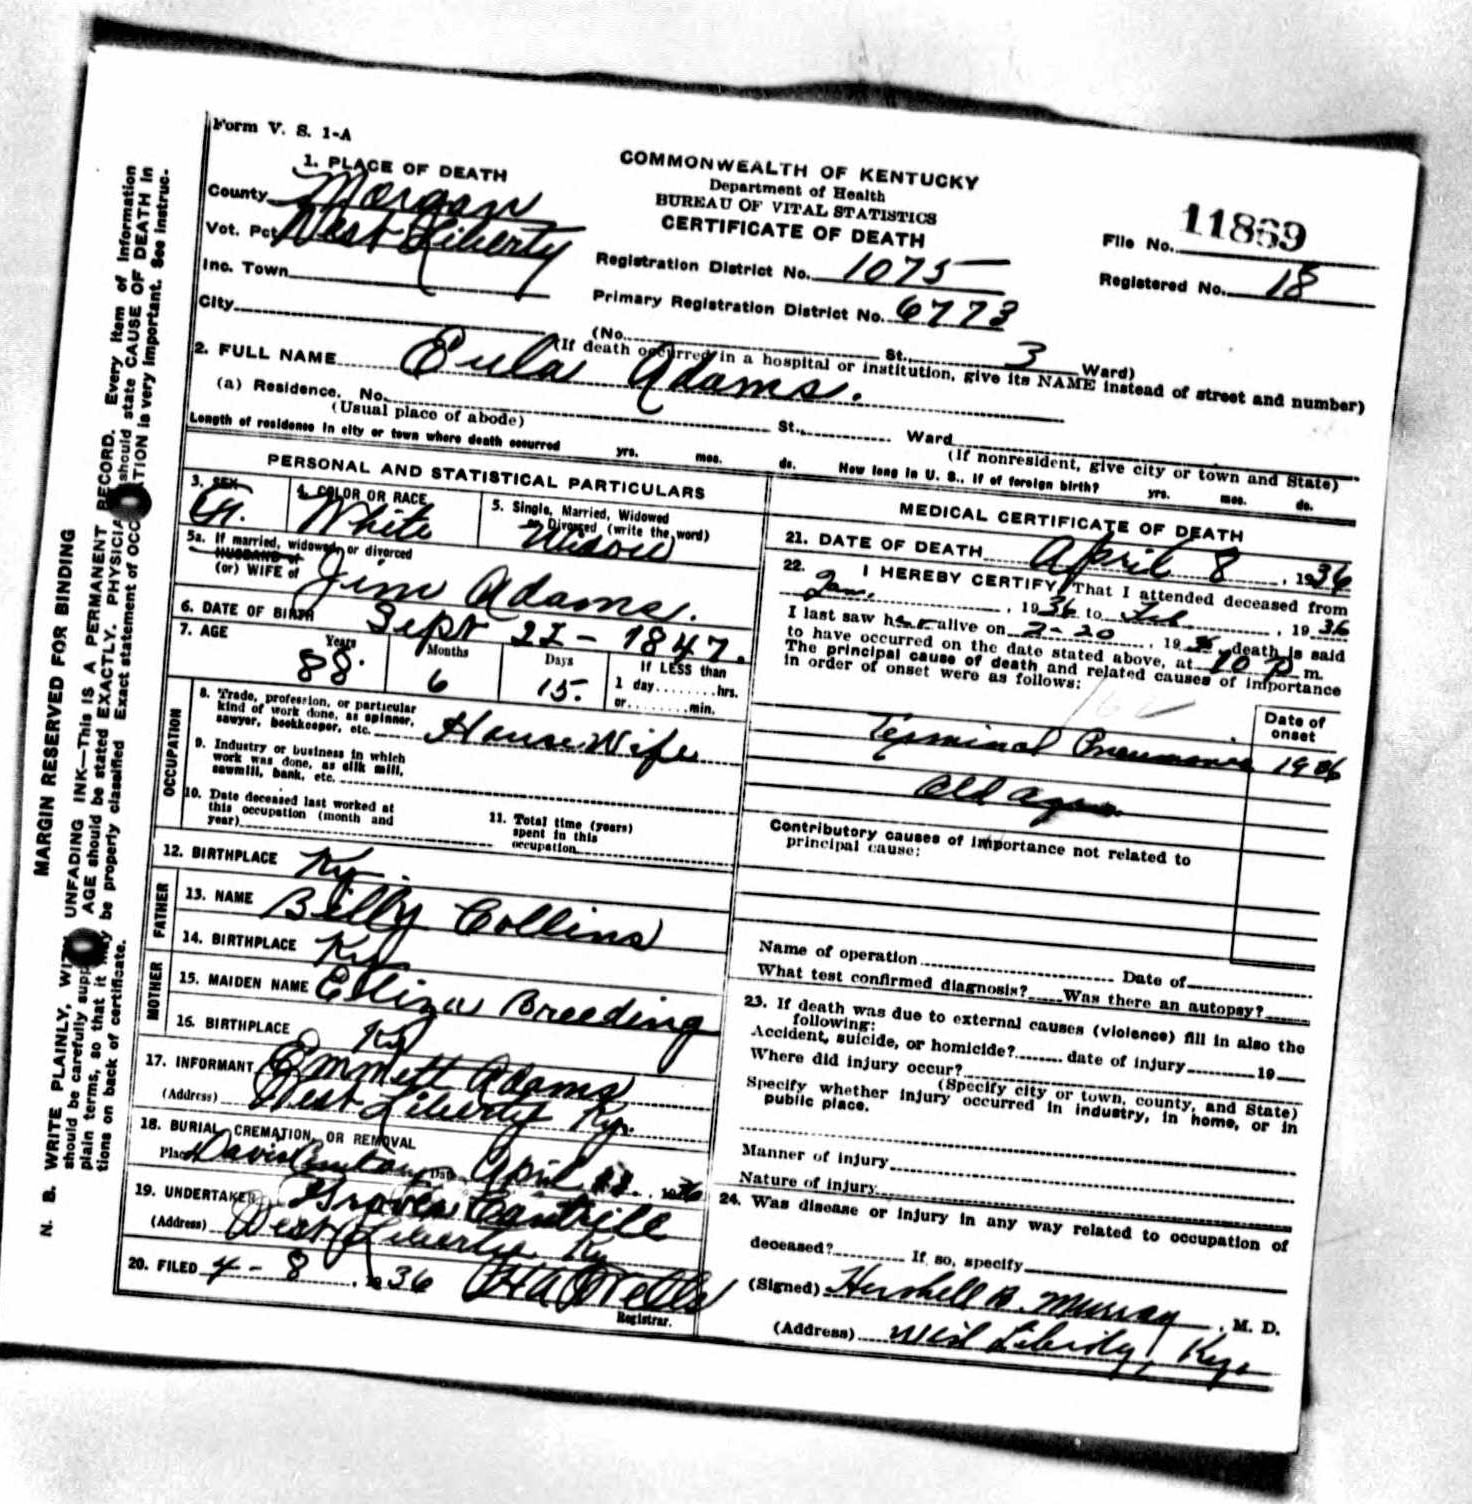 Form V. S. 1-A
COMMONWEALTH OF KENTUCKY
Department of Health
BUREAU OF VITAL STATISTICS
CERTIFICATE OF DEATH
File No. 11869
Registered No. 18
Registration District No. 1075
Primary Registration District No. 6773
1. PLACE OF DEATH
County Morgan
Vot. Pct West Liberty
Inc. Town
City
(No. St. 3 Ward)
(If death occurred in a hospital or institution, give its NAME instead of street and number)
2. FULL NAME Eula Adams.
(a) Residence. No. St., Ward
(Usual place of abode)
(If nonresident, give city or town and State)
Length of residence in city or town where death occurred yrs. mos. ds. How long in U. S., if of foreign birth? yrs. mos. ds.
PERSONAL AND STATISTICAL PARTICULARS
3. SEX
4. COLOR OR RACE White
5. Single, Married, Widowed
or Divorced (write the word)
Widow
5a. If married, widowed, or divorced
HUSBAND of
(or) WIFE of Jim Adams.
6. DATE OF BIRTH Sept 22 - 1847.
7. AGE Years 88. Months 6 Days 15. If LESS than
1 day........hrs.
or........min.
OCCUPATION
8. Trade, profession, or particular
kind of work done, as spinner,
sawyer, bookkeeper, etc. House Wife
9. Industry or business in which
work was done, as silk mill,
sawmill, bank, etc.
10. Date deceased last worked at
this occupation (month and
year)
11. Total time (years)
spent in this
occupation
12. BIRTHPLACE Ky.
FATHER
13. NAME Billy Collins
14. BIRTHPLACE Ky
MOTHER
15. MAIDEN NAME Eliza Breeding
16. BIRTHPLACE Ky
17. INFORMANT Emmett Adams
(Address) West Liberty Ky.
18. BURIAL, CREMATION, OR REMOVAL
Place Davis Date April 1936
19. UNDERTAKER Grover Cantrill
(Address) West Liberty Ky
20. FILED 4 - 8, 1936 Wells
Registrar.
MEDICAL CERTIFICATE OF DEATH
21. DATE OF DEATH April 8, 1936
22. I HEREBY CERTIFY, That I attended deceased from
Jan., 1936 to Feb., 1936
I last saw her alive on 2-20, 1936, death is said
to have occurred on the date stated above, at 10 P m.
The principal cause of death and related causes of importance
in order of onset were as follows:
Date of
onset
Terminal Pneumonia 1936
Old age
Contributory causes of importance not related to
principal cause:
Name of operation Date of
What test confirmed diagnosis? Was there an autopsy?
23. If death was due to external causes (violence) fill in also the
following:
Accident, suicide, or homicide? date of injury 19
Where did injury occur?
(Specify city or town, county, and State)
Specify whether injury occurred in industry, in home, or in
public place.
Manner of injury
Nature of injury
24. Was disease or injury in any way related to occupation of
deceased? If so, specify
(Signed) Hershell B. Murray, M. D.
(Address) West Liberty, Ky.
MARGIN RESERVED FOR BINDING
N. B. WRITE PLAINLY, UNFADING INK—THIS IS A PERMANENT RECORD. Every item of information
should be carefully AGE should be stated EXACTLY. should state CAUSE OF DEATH in
plain terms, so that it may be properly classified. Exact statement of is very important. See instruc-
tions on back of certificate.